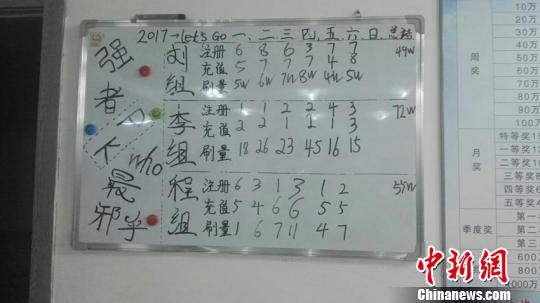 2017→Let's Go 一、二、三、四、五、六、日 总结
强者
不
who
最
邪乎
刘组
注册 6 8 6 3 7 7
充值 5 7 7 7 4 8
刷量 5w 6w 7w 8w 4w 5w
49w
李组
注册 1 1 2 2 4 3
充值 2 2 1 2 1 3
刷量 18 26 23 45 16 15
72w
程组
注册 6 3 1 3 1 2
充值 5 4 6 6 5 5
刷量 1 6 7 11 4 7
周奖
10万
20万
30万
40万
50万
60万
70万
80万
90万
100万
月奖
特等奖
一等奖
二等奖
三等奖
四等奖
五等奖
季度奖
第一
第二
第三
600
800
1000万
中新网
Chinanews.com